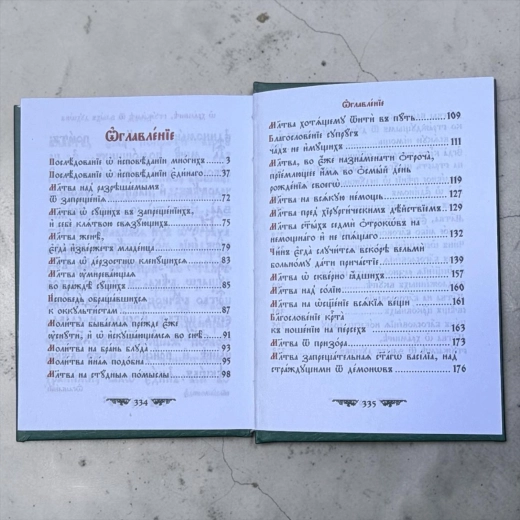 Ѡглавле́нїе
Послѣ́дованїе ѡ҆ и҆сповѣ́данїи мно́гихъ.......3
Послѣ́дованїе ѡ҆ и҆сповѣ́данїи є҆ди́наго........37
Мл҃тва над̾ разрѣша́емымъ
ѿ запреще́нїѧ.......72
Мл҃тва ѡ҆ сꙋ́щихъ въ запреще́нїихъ,
и҆ себѐ клѧ́твою свѧзꙋ́ющихъ.......75
Мл҃тва женѣ̀,
є҆гда̀ и҆зве́ржетъ младе́нца.......79
Мл҃тва ѡ҆ де́рзостнѡ кленꙋ́щихсѧ.......83
Мл҃тва ᲂу҆мире́вающаѧ
во враждѣ̀ сꙋ́щихъ.......85
И҆сповѣдь ѡ҆браща́вшихсѧ
к ѻ҆ккꙋльти́стам.......87
Моли́тва быва́емаѧ пре́жде є҆́же
ᲂу҆снꙋ́ти, и҆ ѡ҆ и҆скꙋша́ющемсѧ во снѣ̀..91
Моли́тва на бра́нь блꙋда̀.......93
Моли́тва и҆на́ѧ подо́бна.......95
Мл҃тва на стꙋ́дныѧ по́мыслы.......98
334
Ѡглавле́нїе
Мл҃тва хотѧ́щемꙋ ѿитѝ въ пꙋ́ть..109
Благослове́нїе сꙋпрꙋ́гъ
ча̑дъ не и҆мꙋ́щихъ.......111
Мл҃тва, во є҆́же назна́менати ѻ҆́троча̀,
прїе́млющее и҆́мѧ во ѻ҆смы́й де́нь
рожде́нїѧ своегѡ̀.......119
Мл҃тва на всѧ́кꙋю не́мощь.......127
Мл҃тва пред̾ хирꙋрги́ческимъ дѣ́йствїемъ.129
Мл҃тва ст҃ы́хъ седмѝ ѻ҆трокѡ́въ на
немощна́го и҆ не спѧ́щаго.......132
Чи́нъ є҆гда̀ слꙋчи́тсѧ вско́рѣ вельмѝ
больно́мꙋ да́ти прича́стїе.......139
Мл҃тва ѡ҆ скве́рно ꙗ҆́дшихъ.......157
Мл҃тва над̾ со́лїю.......160
Мл҃тва на ѡ҆сщ҃е́нїе всѧ́кїѧ ве́щи.......161
Благослове́нїе крⷭ҇та̀
къ ноше́нїю на пе́рсехъ.......163
Мл҃тва ѿ призо́ра.......173
Мл҃тва запрети́тельнаѧ ст҃а́гѡ васі́лїа, над̾
стра́ждꙋщими ѿ де́мѡновъ.......176
335